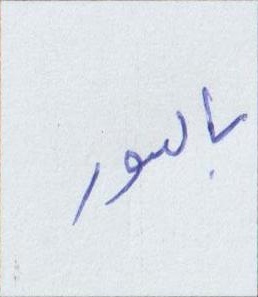 بالسور